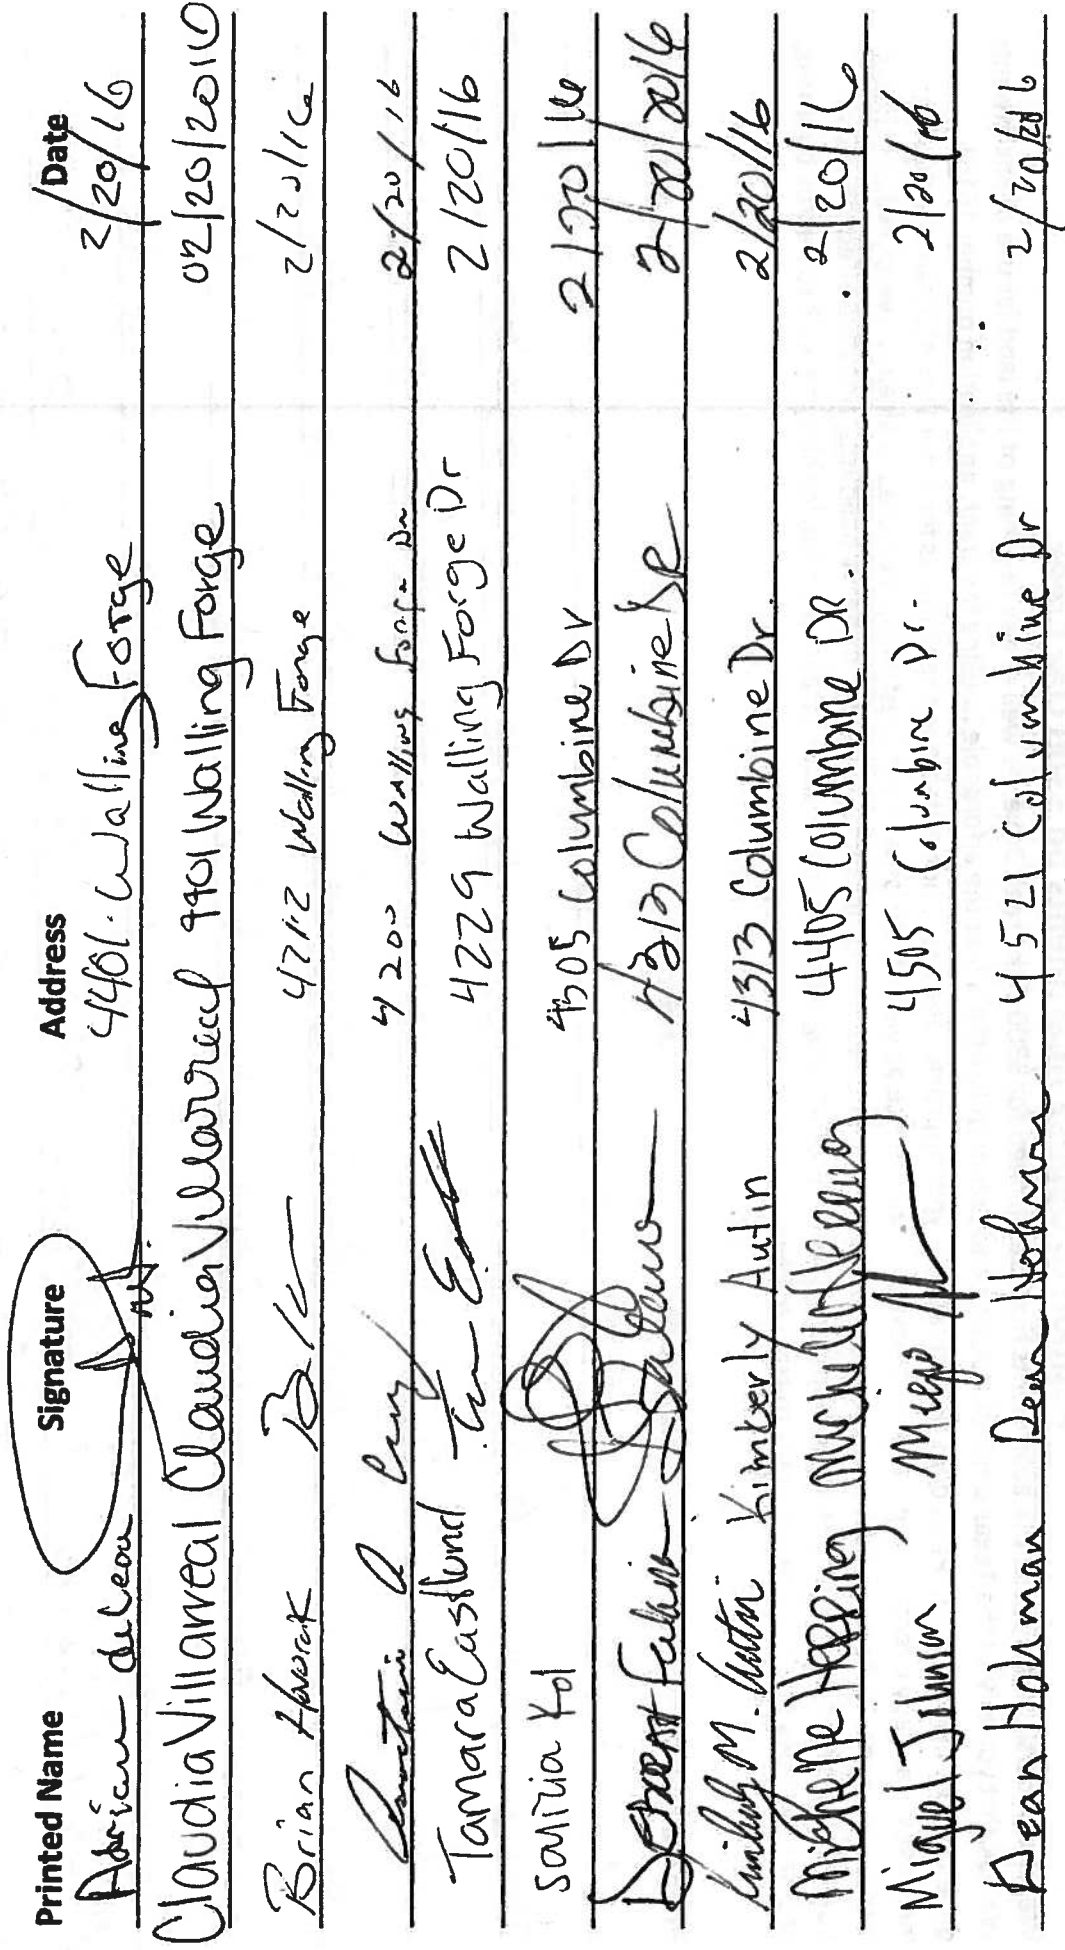 Printed Name Signature Address Date
Adrian deLeon 4401 Walling Forge 2/20/16
Claudia Villarreal Claudia Villarreal 4401 Walling Forge 02/20/2016
Brian Havorak 4212 Walling Forge 2/20/16
4200 Walling Forge Dr 2/20/16
Tamara Eastlund 4229 Walling Forge Dr 2/20/16
Kol 4505 Columbine Dr 2/20/16
4313 Columbine DR 2/20/2016
Kimberly M. Autin Kimberly Autin 4313 Columbine Dr. 2/20/16
Michelle 4405 Columbine DR. 2/20/16
Miguel Johnson 4505 Columbine Dr. 2/20/16
Dean Hohman Dean Hohman 4521 Columbine Dr 2/20/2016